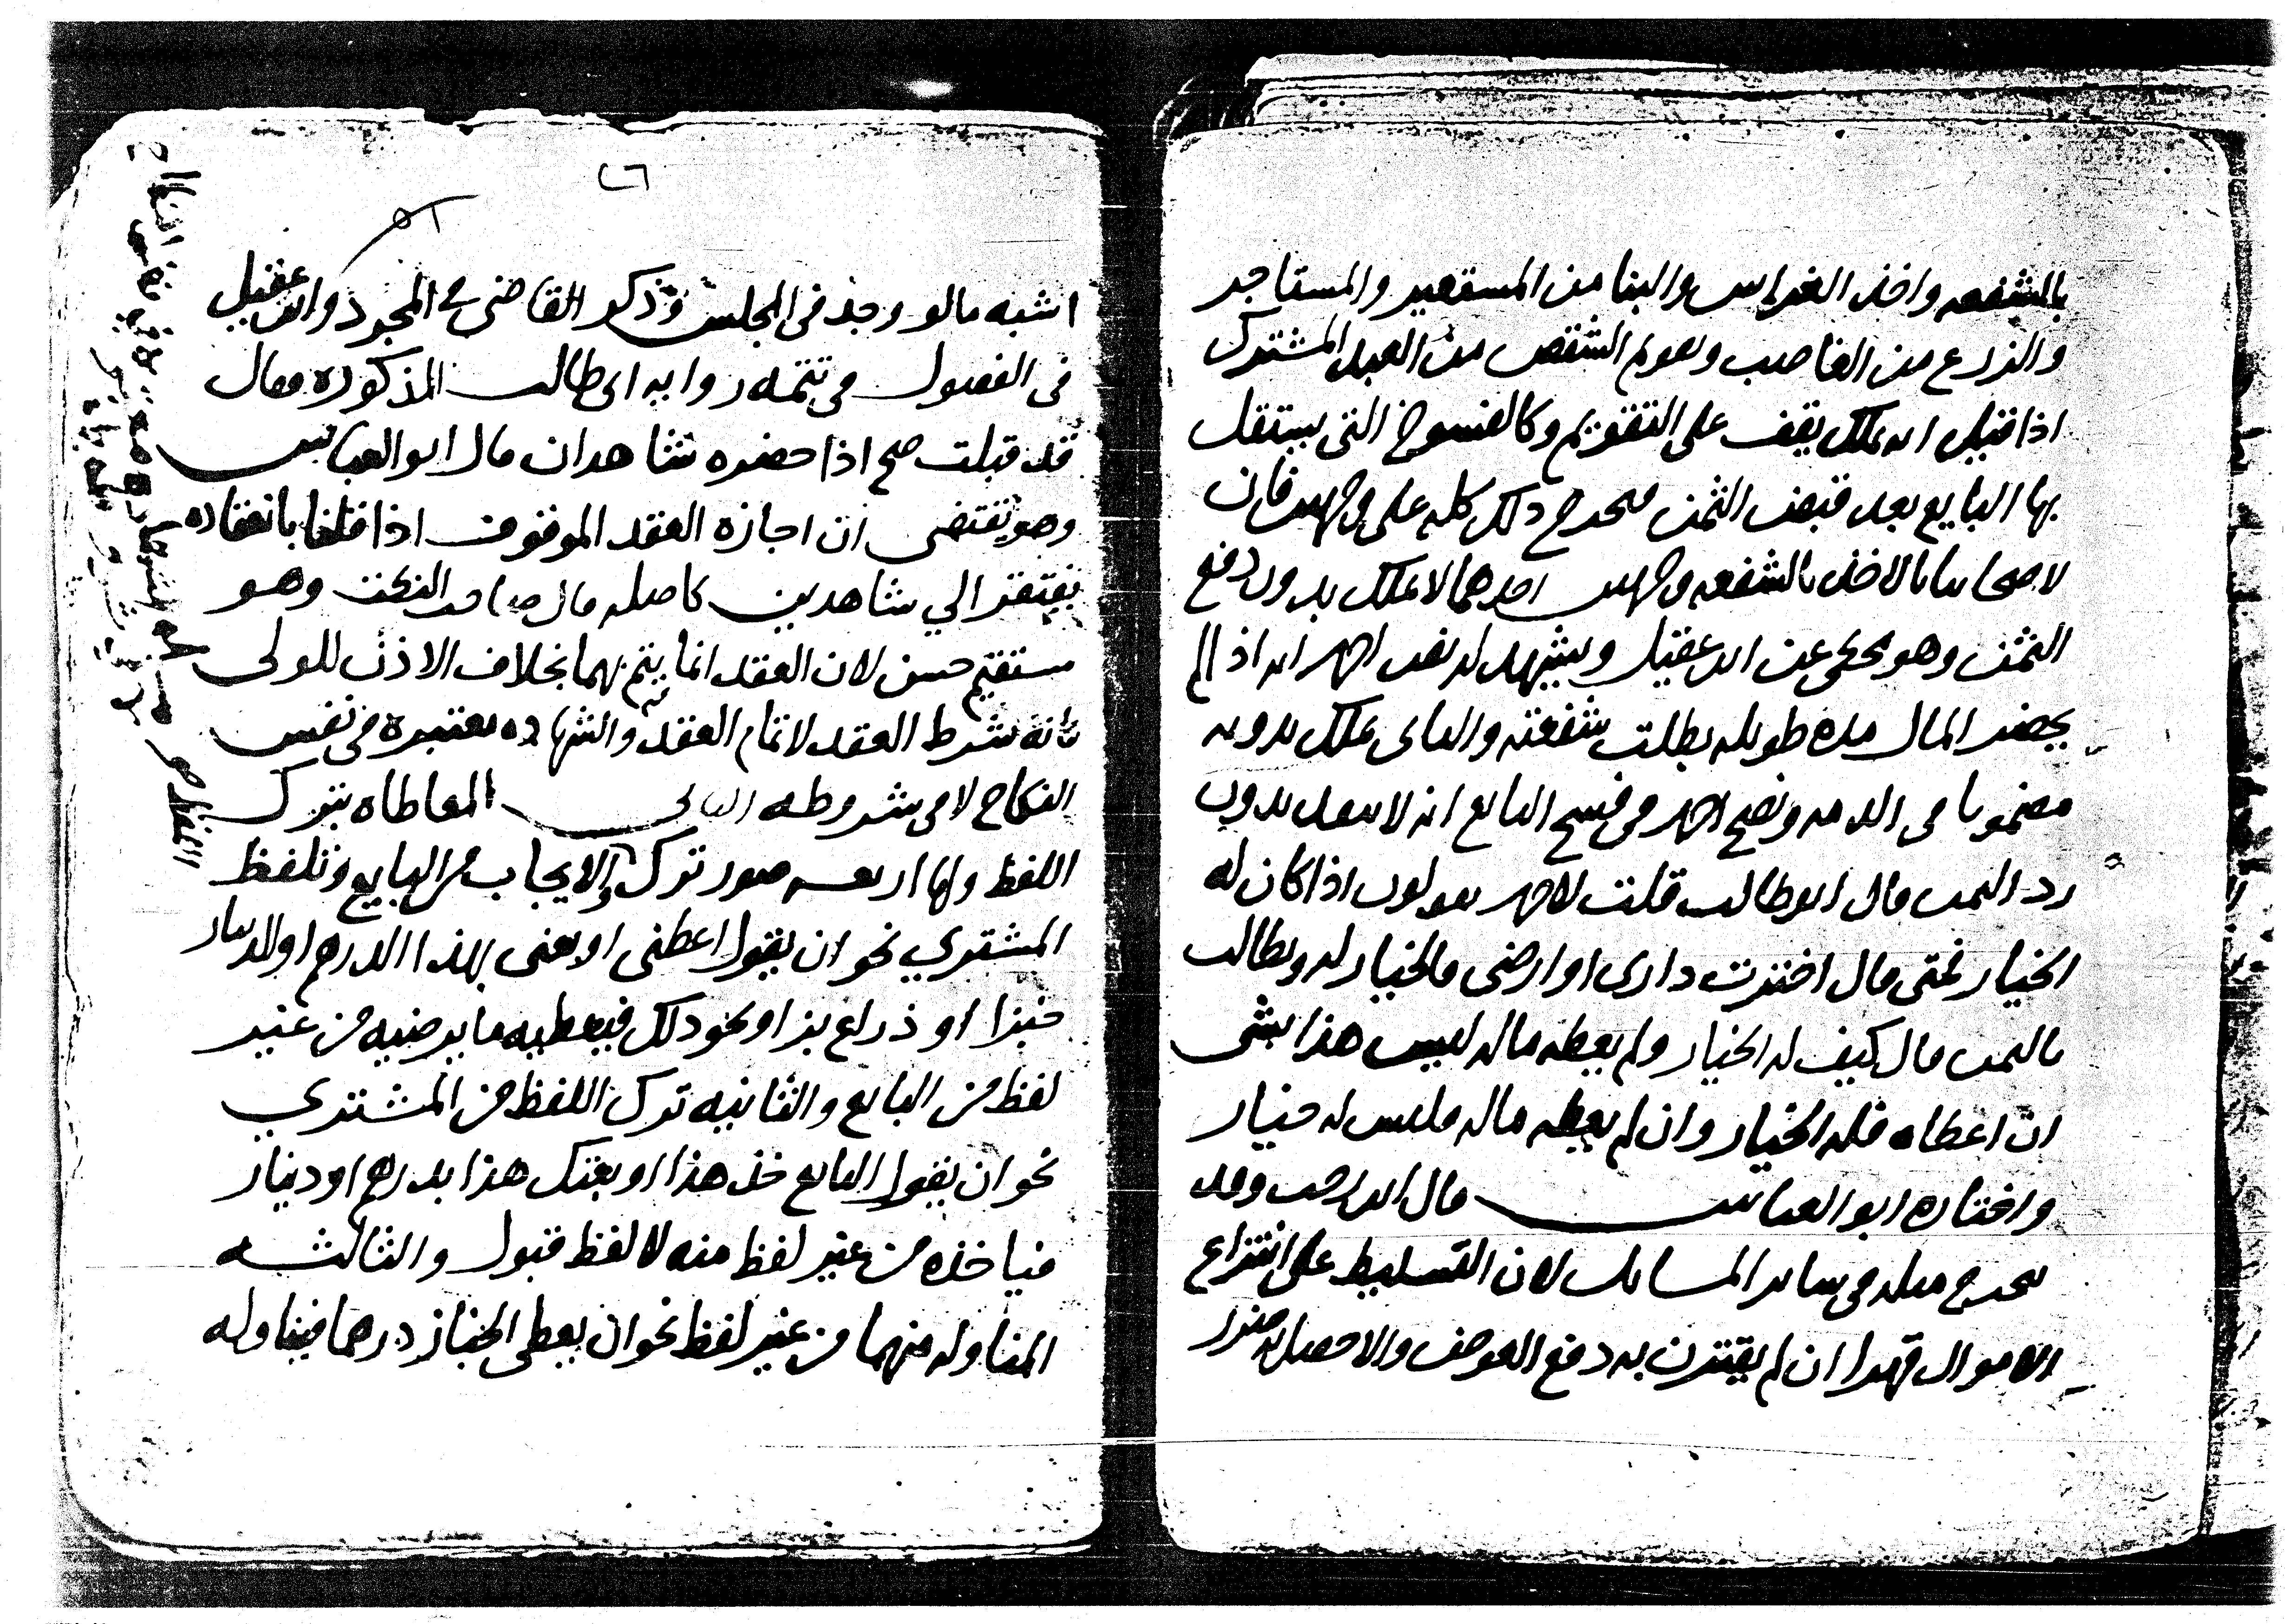 بالشفعه واخذ الغراس والبنا من المستعير والمستاجر
والزرع من الغاصب وتقويم الشقص من العبد المشترك
اذا قيل انه يملك يقف على التقويم وكالفسوخ التي يستقل
بها البايع بعد قبض الثمن يتخرج ذلك كله على وجهين فان
لاصحابنا بالاخذ بالشفعه وجهين احدهما لا يملك بدون دفع
الثمن وهو محكي عن ابن عقيل ويشهد له نص احمد انه اذا لم
يحضر المال مده طويله بطلت شفعته والثاني يملك بدونه
مضمونا في الذمه ونص احمد في فسخ البايع انه لا ينفذ بدون
رد الثمن قال ابو طالب قلت لاحمد يقولون اذا كان له
الخيار فمتى قال اخترت داري او ارضي فالخيار له ويطالب
بالثمن قال كيف له الخيار ولم يعطه ماله ليس هذا بشي
ان اعطاه فله الخيار وان لم يعطه ماله فليس له خيار
واختاره ابو العباس قال ابن رجب وقد
يتخرج مثله في ساير المسايل لان التسليط على انتزاع
الاموال قهرا ان لم يقترن به دفع العوض والا حصل به ضرر
٢٦
٥١
اشبه مالو وجد في المجلس وذكر القاضي في المجرد وابن عقيل
في الفصول في تتمه روايه ابي طالب المذكوره فقال
قد قبلت صح اذا حضره شاهدان قال ابو العباس
وهو يقتضي ان اجازه العقد الموقوف اذا قلنا بانعقاده
يفتقر الي شاهدين كاصله قال صاحب النكت وهو
مستقيم حسن لان العقد انما يتم بهما بخلاف الاذن للولي
فانه شرط العقد لا تمام العقد والشهاده معتبره في نفس
النكاح لا في شروطه الثاني المعاطاه بترك
اللفظ ولها اربعه صور ترك الايجاب من البايع وتلفظ
المشتري نحو ان يقول اعطني او بعني بهذا الدرهم او الدينار
خبزا او ذراع بز او نحو ذلك فيعطيه ما يرضيه من غير
لفظ من البايع والثانيه ترك اللفظ من المشتري
نحو ان يقول البايع خذ هذا او بعتك هذا بدرهم او دينار
فياخذه من غير لفظ منه لا لفظ قبول والثالثه
المناوله منهما من غير لفظ نحو ان يعطي الخباز درهما فيناوله